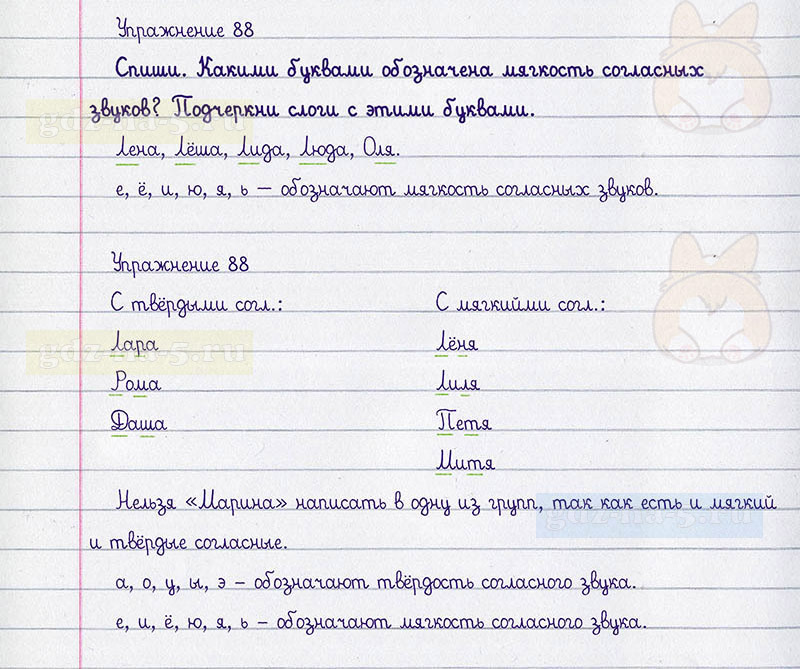 Упражнение 88
Спиши. Какими буквами обозначена мягкость согласных
звуков? Подчеркни слоги с этими буквами.
gdz-na-5.ru
Лена, Лёша, Лида, Люда, Оля.
е, ё, и, ю, я, ь – обозначают мягкость согласных звуков.
Упражнение 88
С твёрдыми согл.: С мягкийми согл.:
Лара Лёня
gdz-na-5.ru
Рома Лиля
Даша Петя
Митя
Нельзя «Марина» написать в одну из групп, так как есть и мягкий
gdz-na-5.ru
и твёрдые согласные.
а, о, у, ы, э – обозначают твёрдость согласного звука.
е, и, ё, ю, я, ь – обозначают мягкость согласного звука.